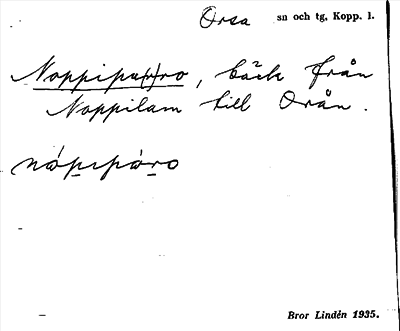 Orsa sn och tg, Kopp. l.
Noppipu(r)ro, bäck från
Noppilam till Orån.
nópipùro
Bror Lindén 1935.